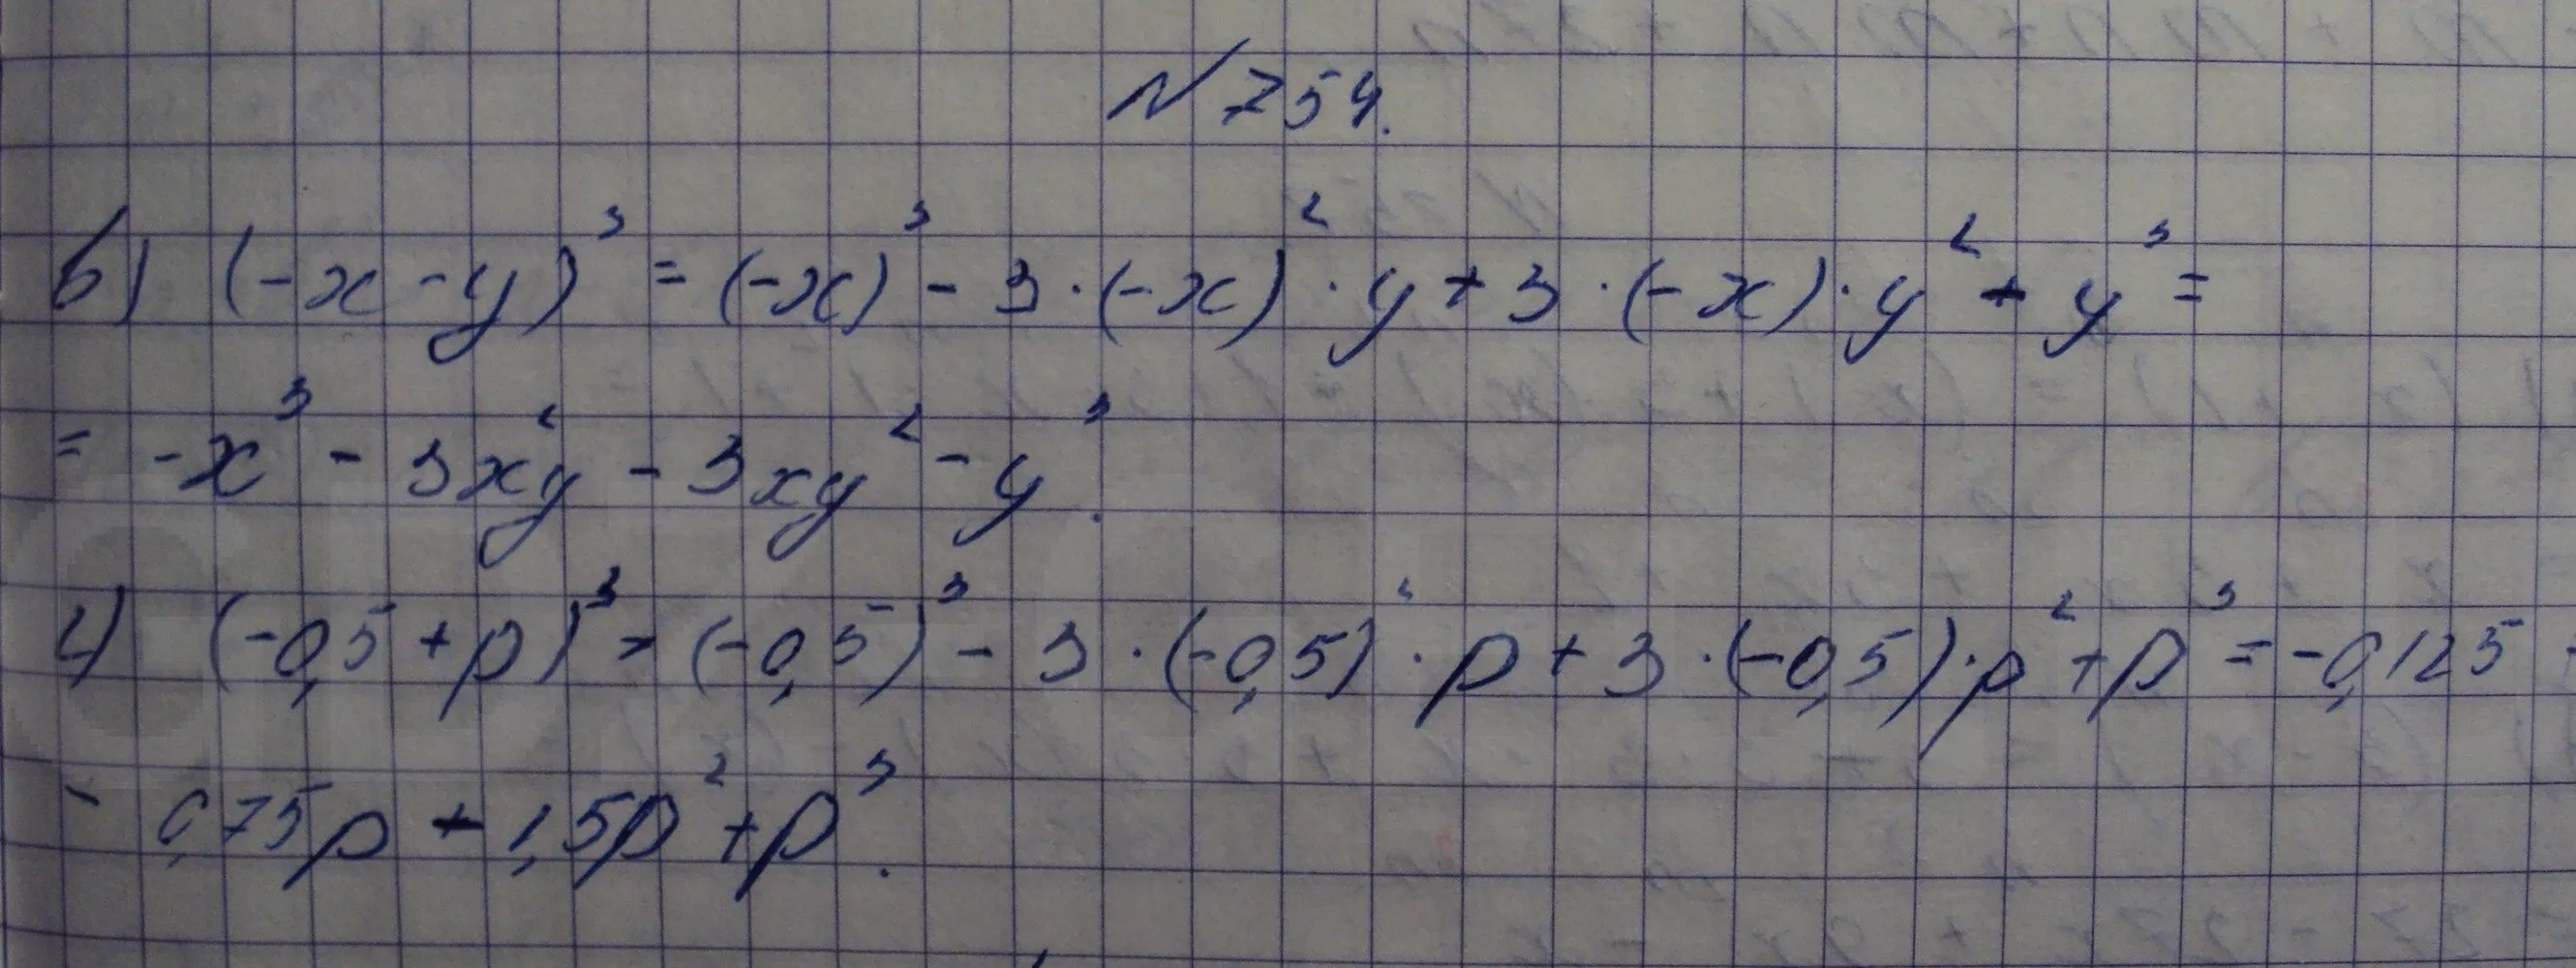 № 754.
в) (-x - y)³ = (-x)³ - 3 · (-x)² · y + 3 · (-x) · y² - y³ =
= -x³ - 3x²y - 3xy² - y³.
г) (-0,5 + p)³ = (-0,5)³ - 3 · (-0,5)² · p + 3 · (-0,5) · p² + p³ = -0,125 -
- 0,75p - 1,5p² + p³.